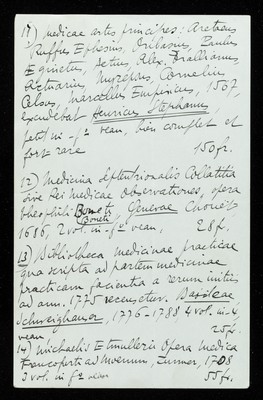 11) medicae artis principes: Aretaeus
Ruffus Ephesius, Oribasius, Paulus
Egineta, Aetius, Alex. Trallianus
Actuarius, Myrepsus, Cornelius
Celsus, Marcellus Empiricus, 1567,
excudebat Henricus Stephanus
petit in-fº veau, bien complet et
fort rare 150 fr.
12) Medicina septentrionalis Collatitia
sive rei medicae observationes, opera
theophili Boneti Genevae Chouet
Boneti
1686, 2 vol. in-fº veau, 28 f.
13) Bibliotheca medicinae practicae
qua scripta ad partem medicinae
practicam facientia a rerum initiis
ad ann. 1775 recensetur. Basileae
Schweighauser, 1776-1788 4 vol. in-4
veau 25 f.
14) Michaelis Etmulleri Opera Medica
Francoforti ad Moenum, Zunner, 1708
3 vol. in fº veau 55 fr.